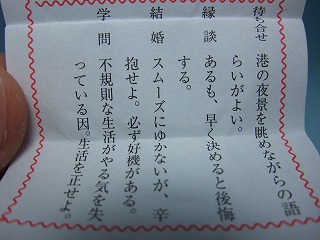 待ち合せ 港の夜景を眺めながらの語
らいがよい。
縁談 あるも、早く決めると後悔
する。
結婚 スムーズにゆかないが、辛
抱せよ。必ず好機がある。
学問 不規則な生活がやる気を失
っている因。生活を正せよ。